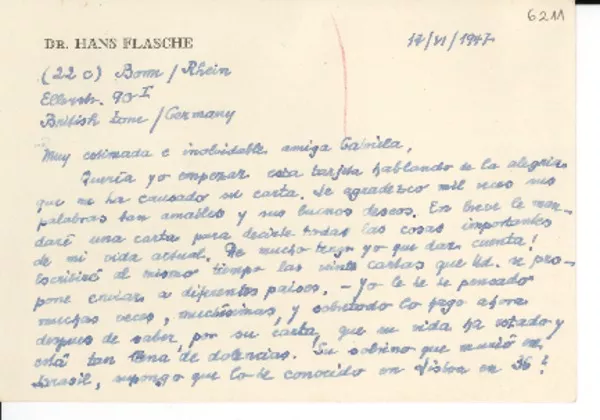 6211
DR. HANS FLASCHE
17/VI/1947
(22 c) Bonn/Rhein
Ellerstr. 90 I
British Zone/Germany
Muy estimada e inolvidable amiga Gabriela,
Quería yo empezar esta tarjeta hablando de la alegría
que me ha causado su carta. Le agradezco mil veces sus
palabras tan amables y sus buenos deseos. En breve le man-
daré una carta para decirle todas las cosas importantes
de mi vida actual. De mucho tengo yo que dar cuenta!
Escribiré al mismo tiempo las veinte cartas que Ud. se pro-
pone enviar a diferentes países. - Yo le he pensado
muchas veces, muchísimas, y sobretodo lo hago ahora
despues de saber, por su carta, que su vida ha estado y
está tan llena de dolencias. Su sobrino que murió en
Brasil, supongo que lo he conocido en Lisboa en 36!